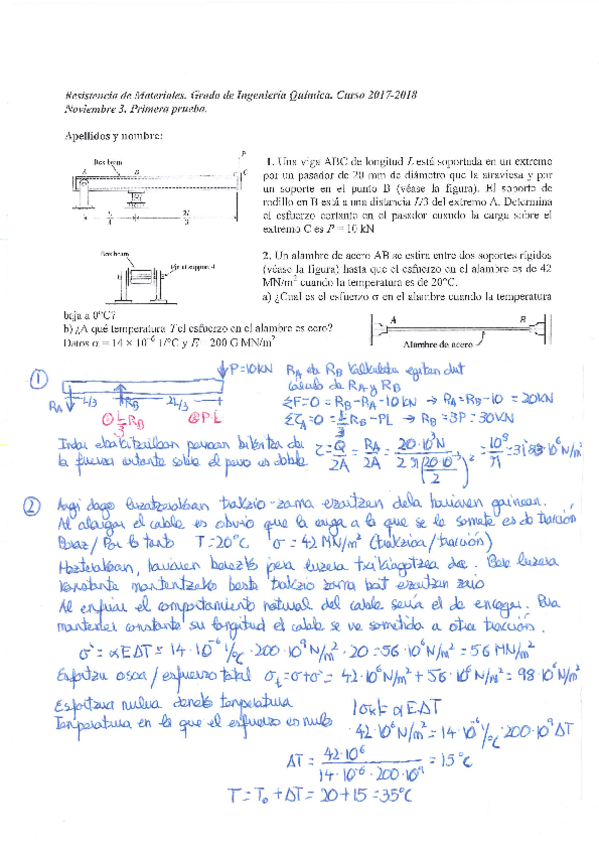 Resistencia de Materiales. Grado de Ingeniería Química. Curso 2017-2018
Noviembre 3. Primera prueba.
Apellidos y nombre:
Box beam
P
A
B
C
1. Una viga ABC de longitud L está soportada en un extremo
por un pasador de 20 mm de diámetro que la atraviesa y por
un soporte en el punto B (véase la figura). El soporte de
rodillo en B está a una distancia L/3 del extremo A. Determina
el esfuerzo cortante en el pasador cuando la carga sobre el
extremo C es P = 10 kN
Box beam
Pin at support A
2. Un alambre de acero AB se estira entre dos soportes rígidos
(véase la figura) hasta que el esfuerzo en el alambre es de 42
MN/m² cuando la temperatura es de 20°C.
a) ¿Cual es el esfuerzo σ en el alambre cuando la temperatura
baja a 0°C?
b) ¿A qué temperatura T el esfuerzo en el alambre es cero?
Datos α = 14 × 10⁻⁶ 1/°C y E 200 G MN/m²
A
B
Alambre de acero
1
P=10kN
RA eta RB kalkulatu egiten dut
Cálculo de RA y RB
RA
L/3
RB
2L/3
ΣF=0 = RB-RA-10kN → RA=RB-10 = 20kN
L/3 RB
PL
ΣτA=0 = L/3 RB - PL → RB=3P=30kN
la fuerza cortante sobre el perno es doble
τ = Q/2A = RA/2A = 20·10³N / 2π(20·10⁻³/2)² = 10⁸/π = 31'83·10⁶ N/m²
2
Argi dago luzatzerakoan trakzio-zama ezartzen dela hariaren gainean.
Al alargar el cable es obvio que la carga a la que se le somete es de tracción
Beraz/Por lo tanto T=20°C σ=42MN/m² (trakzioa/tracción)
Hozterakoan, hariaren berezko joera luzera txikiagotzea da. Bere luzera
konstante mantentzeko beste trakzio zama bat ezartzen zaio
Al enfriar el comportamiento natural del cable sería el de encoger. Para
mantener constante su longitud el cable se ve sometido a otra tracción.
σ'=αEΔT = 14·10⁻⁶ 1/°C · 200·10⁹ N/m² · 20 = 56·10⁶ N/m² = 56 MN/m²
Esfortzu osoa/esfuerzo total σt=σ+σ' = 42·10⁶ N/m² + 56·10⁶ N/m² = 98·10⁶ N/m²
Esfortzua nulua deneko tenperatura
Temperatura en la que el esfuerzo es nulo
αEΔT
42·10⁶ N/m² = 14·10⁻⁶ 1/°C · 200·10⁹ ΔT
ΔT = 42·10⁶ / 14·10⁻⁶·200·10⁹ = 15°C
T=To+ΔT = 20+15 = 35°C